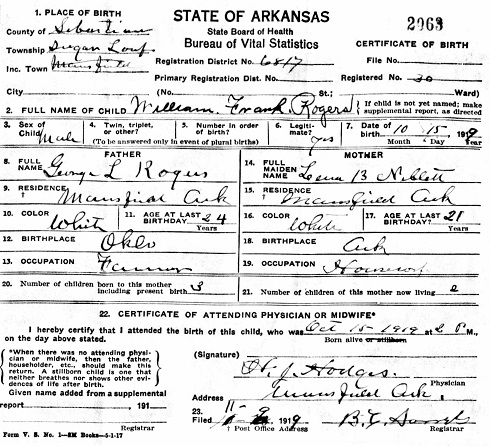 1. PLACE OF BIRTH
STATE OF ARKANSAS
2963
County of Sebastian
State Board of Health
Township Sugar Loaf
Bureau of Vital Statistics
CERTIFICATE OF BIRTH
Inc. Town Mansfield
Registration District No. 6817
File No.
Primary Registration Dist. No.
Registered No. 30
City (No. St.; Ward)
2. FULL NAME OF CHILD William Frank Rogers { If child is not yet named; make
supplemental report, as directed
3. Sex of Child Male
4. Twin, triplet, or other?
5. Number in order of birth?
(To be answered only in event of plural births)
6. Legitimate? yes
7. Date of birth 10 15 1919
Month & Day Year
FATHER
8. FULL NAME George L Rogers
MOTHER
14. FULL MAIDEN NAME Lena B Niblett
9. RESIDENCE † Mansfield Ark
15. RESIDENCE † Mansfield Ark
10. COLOR White
11. AGE AT LAST BIRTHDAY? 24 Years
16. COLOR White
17. AGE AT LAST BIRTHDAY? 21 Years
12. BIRTHPLACE
18. BIRTHPLACE Ark
13. OCCUPATION Farmer
19. OCCUPATION
20. Number of children born to this mother
including present birth 3
21. Number of children of this mother now living 2
22. CERTIFICATE OF ATTENDING PHYSICIAN OR MIDWIFE*
I hereby certify that I attended the birth of this child, who was Oct 15 1919 at 2 P M.,
on the day above stated.
Born alive or stillborn
{ *When there was no attending physician or midwife, then the father, householder, etc., should make this return. A stillborn child is one that neither breathes nor shows other evidences of life after birth. }
(Signature) Hodges
Physician
Address Mansfield Ark.
Given name added from a supplemental
report 191
Registrar
23.
Filed 11 1919 B.
† Post Office Address Registrar
Form V. S. No. 1—8M Books—5-1-17